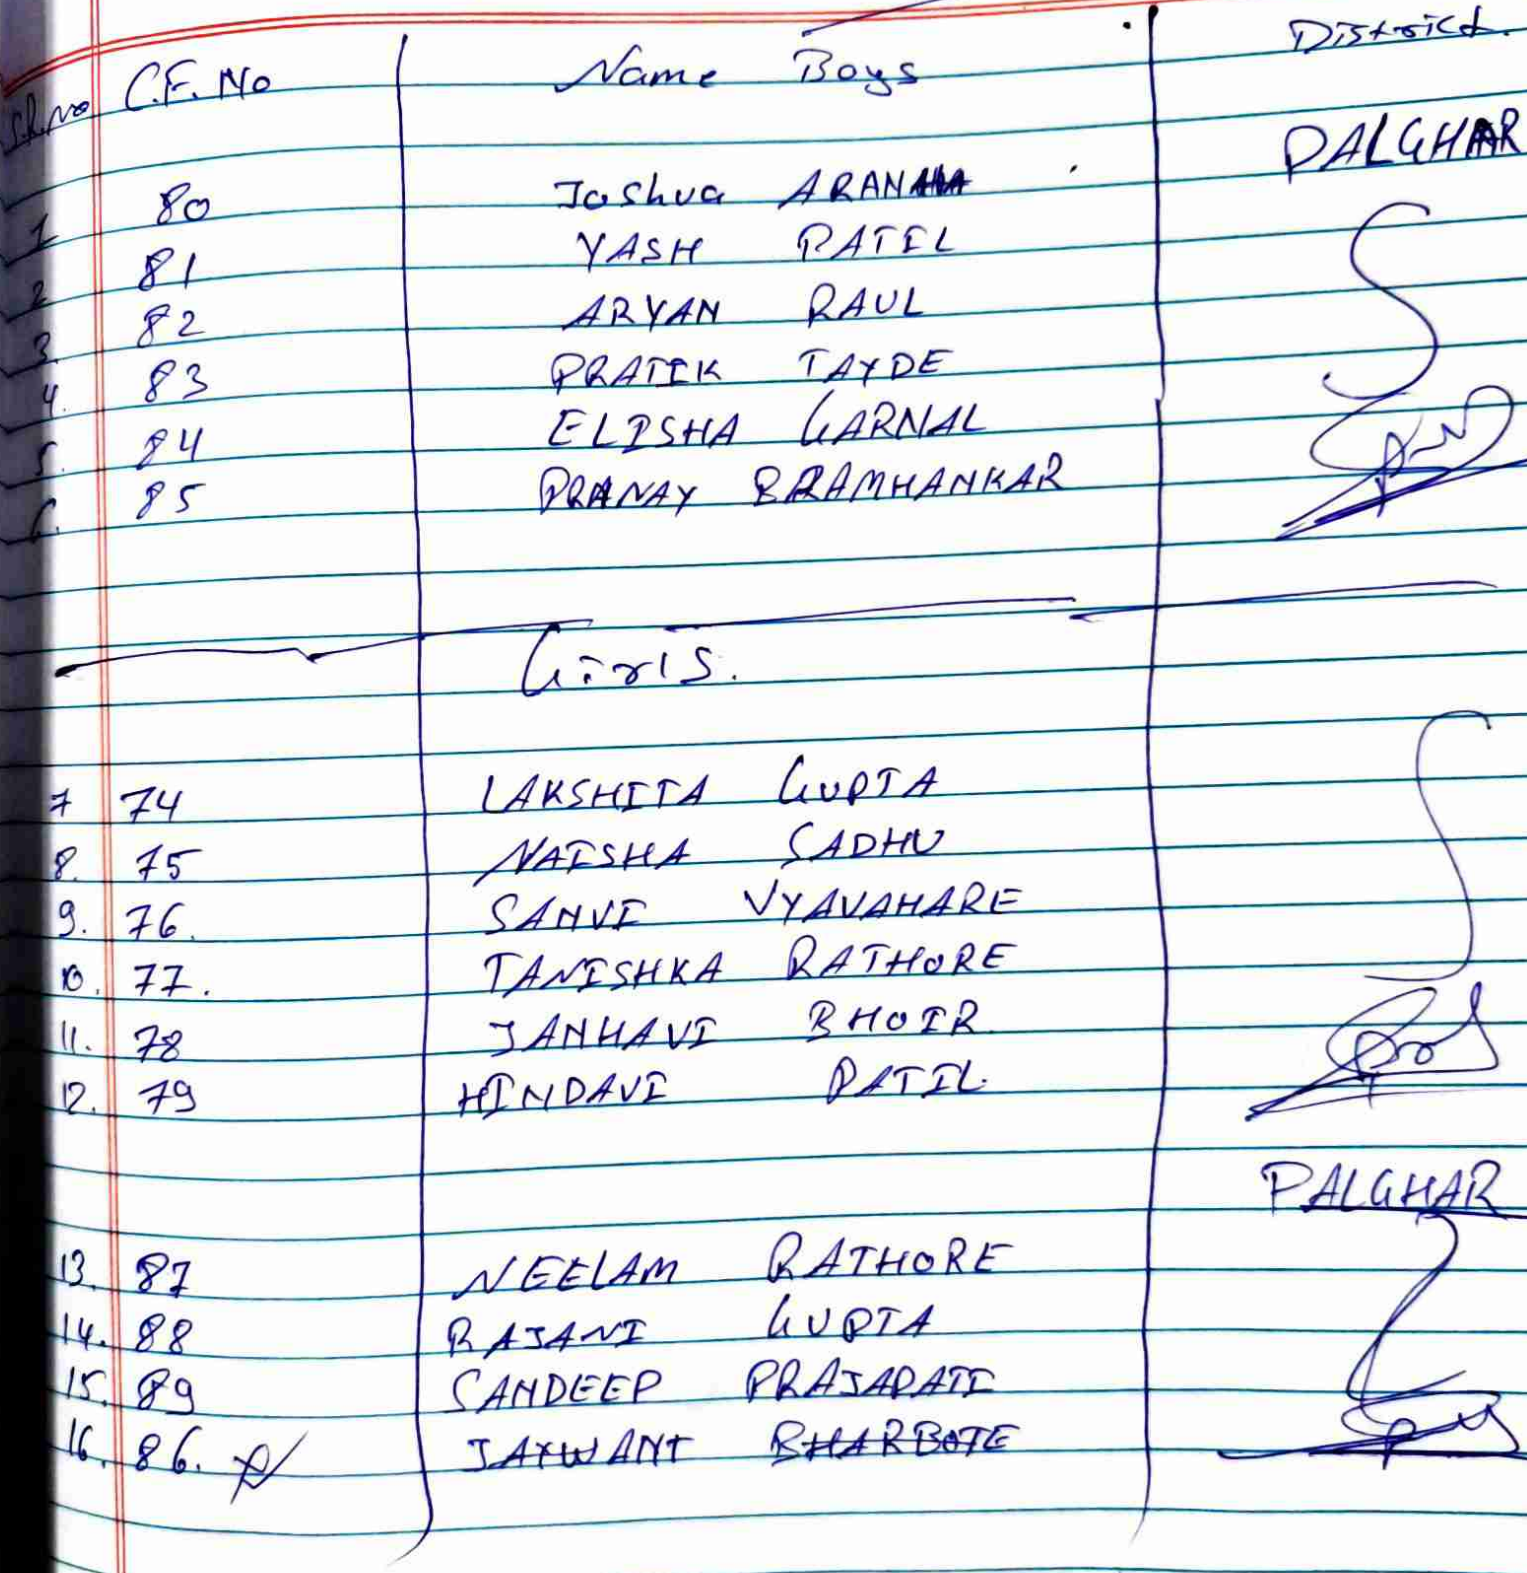 Sr.No C.F. No Name Boys District.
PALGHAR
1 80 Joshua ARANHA
2 81 YASH PATIL
3. 82 ARYAN RAUL
4. 83 PRATIK TAYDE
5. 84 ELISHA GARNAL
6. 85 PRANAY BRAMHANKAR
Girls.
7 74 LAKSHITA GUPTA
8. 75 NAISHA SADHU
9. 76. SANVI VYAVAHARE
10. 77. TANISHKA RATHORE
11. 78 JANHAVI BHOIR.
12. 79 HINDAVI PATIL.
PALGHAR
13. 87 NEELAM RATHORE
14. 88 RAJANI GUPTA
15. 89 SANDEEP PRAJAPATI
16. 86. JAYWANT BHARBOTE